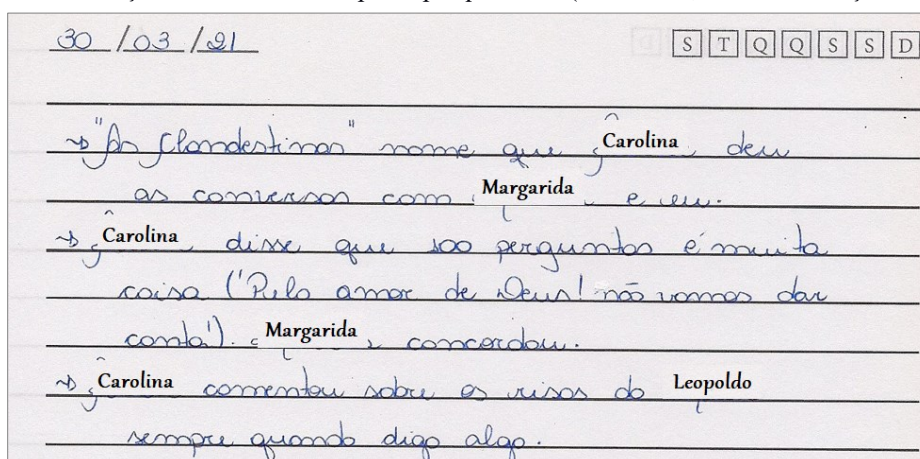 30 / 03 / 21 S T Q Q S S D
→ "As Clandestinas" nome que Carolina deu
as conversas com Margarida e eu.
→ Carolina disse que 100 perguntas é muita
coisa ('Pelo amor de Deus! não vamos dar
conta'). Margarida concordou.
→ Carolina comentou sobre os risos do Leopoldo
sempre quando digo algo.